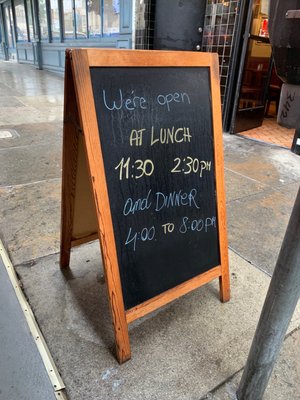 We're open
AT LUNCH
11:30 2:30PM
and DINNER
4:00 TO 8:00PM